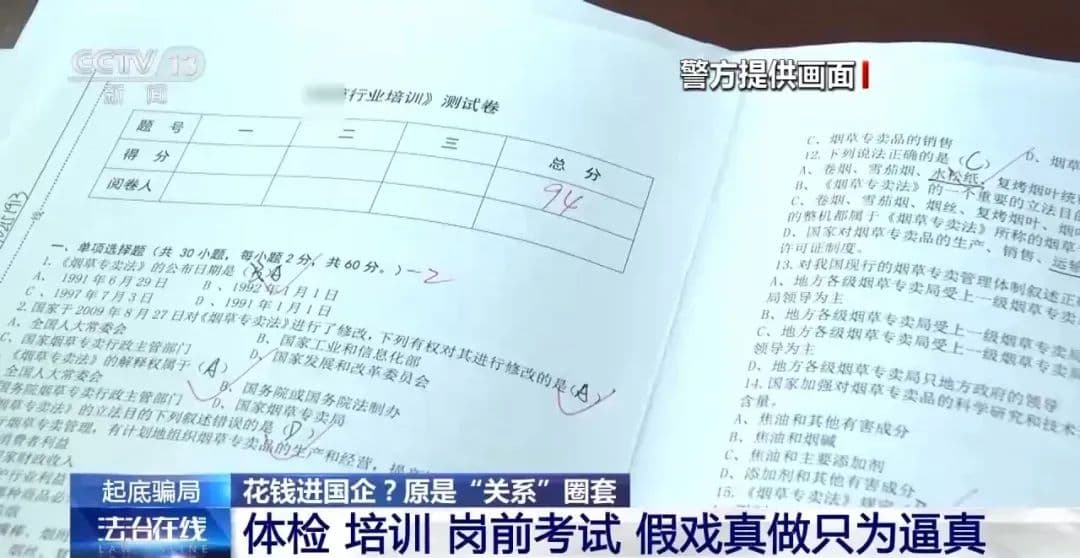 CCTV 13
新闻
警方提供画面
行业培训》测试卷
题 号 一 二 三 总 分
得 分 94
阅卷人
一、单项选择题（共 30 小题，每小题 2 分，共 60 分。）-2
1.《烟草专卖法》的公布日期是（ A ）
A、1991 年 6 月 29 日 B、1992 年 1 月 1 日
C、1997 年 7 月 3 日 D、1991 年 1 月 1 日
2.国家于 2009 年 8 月 27 日对《烟草专卖法》进行了修改，下列有权对其进行修改的是（A）
A、全国人大常委会 B、国家工业和信息化部
C、国家烟草专卖行政主管部门 D、国家发展和改革委员会
《烟草专卖法》的解释权属于（A）
全国人大常委会 B、国务院或国务院法制办
国务院烟草专卖行政主管部门 D、国家烟草专卖局
草专卖法》的立法目的下列叙述错误的是（D）
烟草专卖管理，有计划地组织烟草专卖品的生产和经营，
消费者利益
家财政收入
C、烟草专卖品的销售 D、烟草
12.下列说法正确的是（C）
A、卷烟、雪茄烟、水松纸、复烤烟叶统
B、《烟草专卖法》的一个重要的立法目的
C、卷烟、雪茄烟、烟丝、复烤烟叶、烟
的整机都属于《烟草专卖法》所称的烟草
D、国家对烟草专卖品的生产、销售、运输
许可证制度。
13.对我国现行的烟草专卖管理体制叙述正
A、地方各级烟草专卖局受上一级烟草专卖
局领导为主
B、地方各级烟草专卖局受上一级烟草专卖局
C、地方各级烟草专卖局受上一级烟草专卖局
领导为主
D、地方各级烟草专卖局只地方政府的领导
14.国家加强对烟草专卖品的科学研究和技术
含量。
A、焦油和其他有害成分
B、焦油和烟碱
C、焦油和主要添加剂
D、添加剂和其他有害成分
15.《烟草专卖法》规定
起底骗局
花钱进国企？原是“关系”圈套
法治在线
体检 培训 岗前考试 假戏真做只为逼真